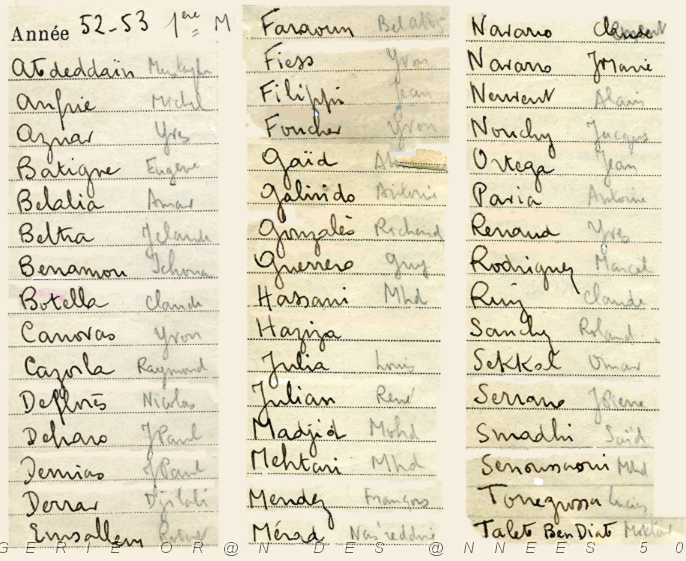 Année 52-53 1ère M
Atdeddaïn
Anfrie Michel
Aznar Yves
Batigne Eugène
Belalia Amar
Beltra JClaude
Benamou
Botella Claude
Canovas Yvon
Cazorla Raymond
Deflorès Nicolas
Deharo JPaul
Demias JPaul
Derrar Djilali
Emsallem Robert
Faraoun
Fiess Yvon
Filippi Jean
Foucher Yvon
Gaïd
Galindo Antoine
Gonzalès Richard
Guerrero Guy
Hassani Mhd
Haziza
Julia Louis
Julian René
Madjid Mohd
Mehtari Mhd
Mendez François
Mérad Nas'reddine
Navarro
Navarro JMarie
Neurent Alain
Nouchy Jacques
Ortega Jean
Paria Antoine
Renaud Yves
Rodriguez Marcel
Ruiz Claude
Sanchz Roland
Sekkal Omar
Serrano JPierre
Smadhi Saïd
Senoussaoui Mhd
Torregrossa Lucien
Talet Ben Diat Mokhtar
GERIE OR@N DES @NNEES 50